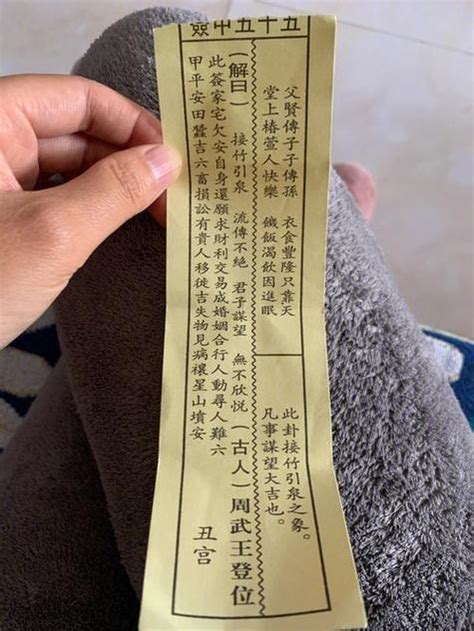 五十五中簽
父賢傳子子傳孫 衣食豐隆只靠天
堂上椿萱人快樂 饑飯渴飲困進眠
此卦接竹引泉之象。
凡事謀望大吉也。
(解曰) 接竹引泉 流傳不絕 君子謀望 無不欣悅 (古人) 周武王登位
此簽家宅欠安自身還願求財利交易成婚姻合行人動尋人難六
甲平安田蠶吉六畜損訟有貴人移徙吉失物見病禳星山墳安
丑宫